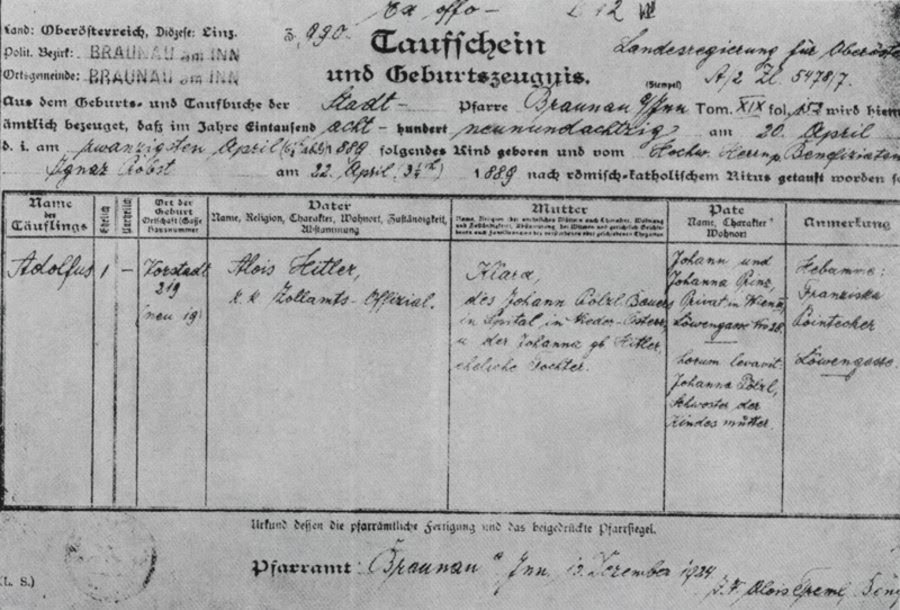 Ex offo
Land: Oberösterreich, Diözese: Linz.
Z. 990.
Taufschein
Landesregierung für Oberöste
Polit. Bezirk: BRAUNAU am INN
und Geburtszeugnis.
(Stempel)
A/2 Zl. 5478/7.
Ortsgemeinde: BRAUNAU am INN
Aus dem Geburts- und Taufbuche der Stadt- Pfarre Braunau a/Inn Tom. XIX fol. 152 wird hiem
ämtlich bezeuget, daß im Jahre Eintausend acht- hundert neunundachtzig am 20. April
d. i. am zwanzigsten April 1889 folgendes Kind geboren und vom Hochw. Herrn Benefiziaten
Ignaz Probst am 22. April 1889 nach römisch-katholischem Ritus getauft worden se
Name
der
Täuflings
Ehelich
Unehelich
Ort der
Geburt
Ortschaft Gasse
Hausnummer
Vater
Name, Religion, Charakter, Wohnort, Zuständigkeit,
Abstammung
Mutter
Pate
Name, Charakter
Wohnort
Anmerkung
Adolfus
1
–
Vorstadt
219
(neu 19)
Alois Hitler,
k. k. Zollamts-Offizial.
Klara,
des Johann Pölzl Bauers
in Spital in Nieder-Österr.
u. der Johanna gb Hitler,
eheliche Tochter.
Johann und
Johanna Prinz,
Privat in Wien
Löwengasse No 28.
horum levavit
Johanna Pölzl,
Schwester der
Kindesmutter.
Hebamme:
Franziska
Pointecker
Löwengasse.
Urkund dessen die pfarrämtliche Fertigung und das beigedrückte Pfarrsiegel.
Pfarramt: Braunau a Inn, 13. Dezember 1924.
(L. S.)